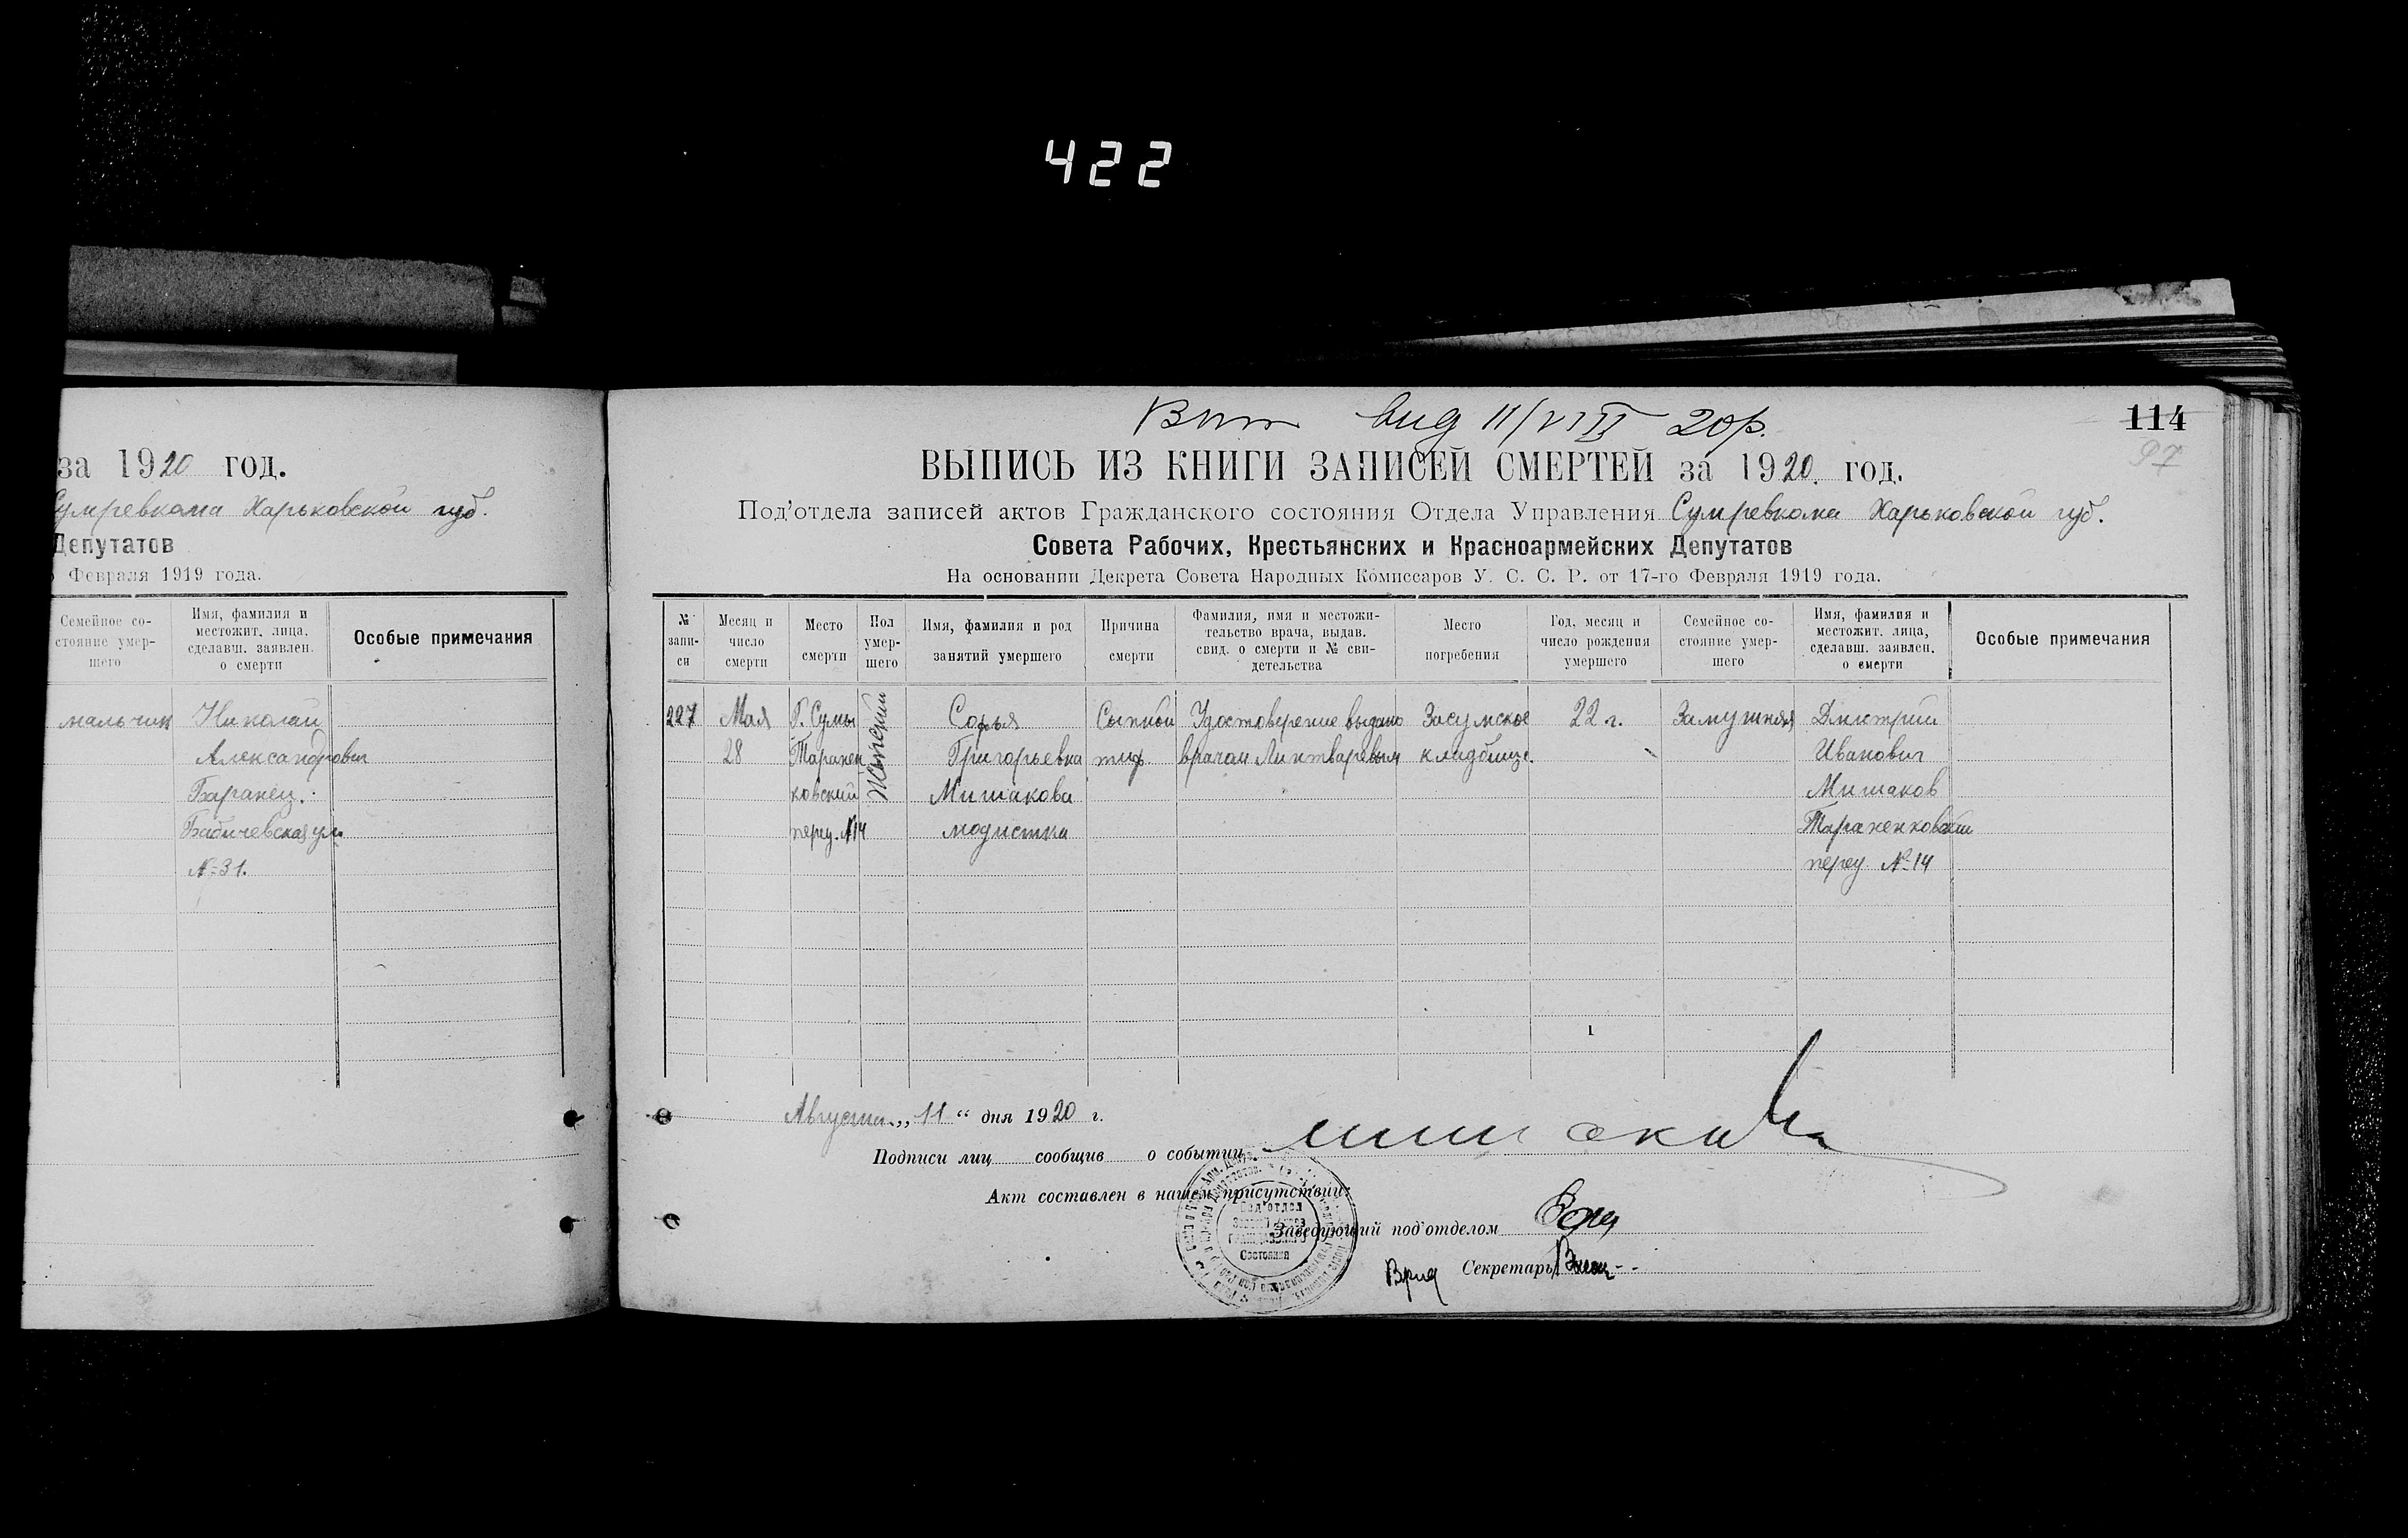 422
за 1920 год.
Сумревкома Харьковской губ.
Депутатов
Февраля 1919 года.
Семейное со-
стояние умер-
шего
Имя, фамилия и
местожит. лица,
сделавш. заявлен.
о смерти
Особые примечания
мальчик
Николай
Александрович
Баранец.
Бабичевская ул.
№ 31.
вид 11/VIII 20р.
114
97
ВЫПИСЬ ИЗ КНИГИ ЗАПИСЕЙ СМЕРТЕЙ за 1920 год.
Под'отдела записей актов Гражданского состояния Отдела Управления Сумревкома Харьковской губ.
Совета Рабочих, Крестьянских и Красноармейских Депутатов
На основании Декрета Совета Народных Комиссаров У. С. С. Р. от 17-го Февраля 1919 года.
№
запи-
си
Месяц и
число
смерти
Место
смерти
Пол
умер-
шего
Имя, фамилия и род
занятий умершего
Причина
смерти
Фамилия, имя и местожи-
тельство врача, выдав.
свид. о смерти и № сви-
детельства
Место
погребения
Год, месяц и
число рождения
умершего
Семейное со-
стояние умер-
шего
Имя, фамилия и
местожит. лица,
сделавш. заявлен.
о смерти
Особые примечания
227
Мая
28
Г. Сумы
Таранен
ковский
переу. №14
Женский
Софья
Григорьевна
Мишакова
модистка
Сыпной
тиф
Удостоверение выдано
врачом Линтваревым
Засумское
кладбище.
22 г.
Замужняя
Дмитрий
Иванович
Мишаков
Тараненковский
переу. №14
Августа „11“ дня 1920 г.
Подписи лиц сообщив о событии
Мишакова
Акт составлен в нашем присутствии:
Под'отдел
Записи актов
Гражданского
Состояния
Заведующий под'отделом
Врид Секретарь